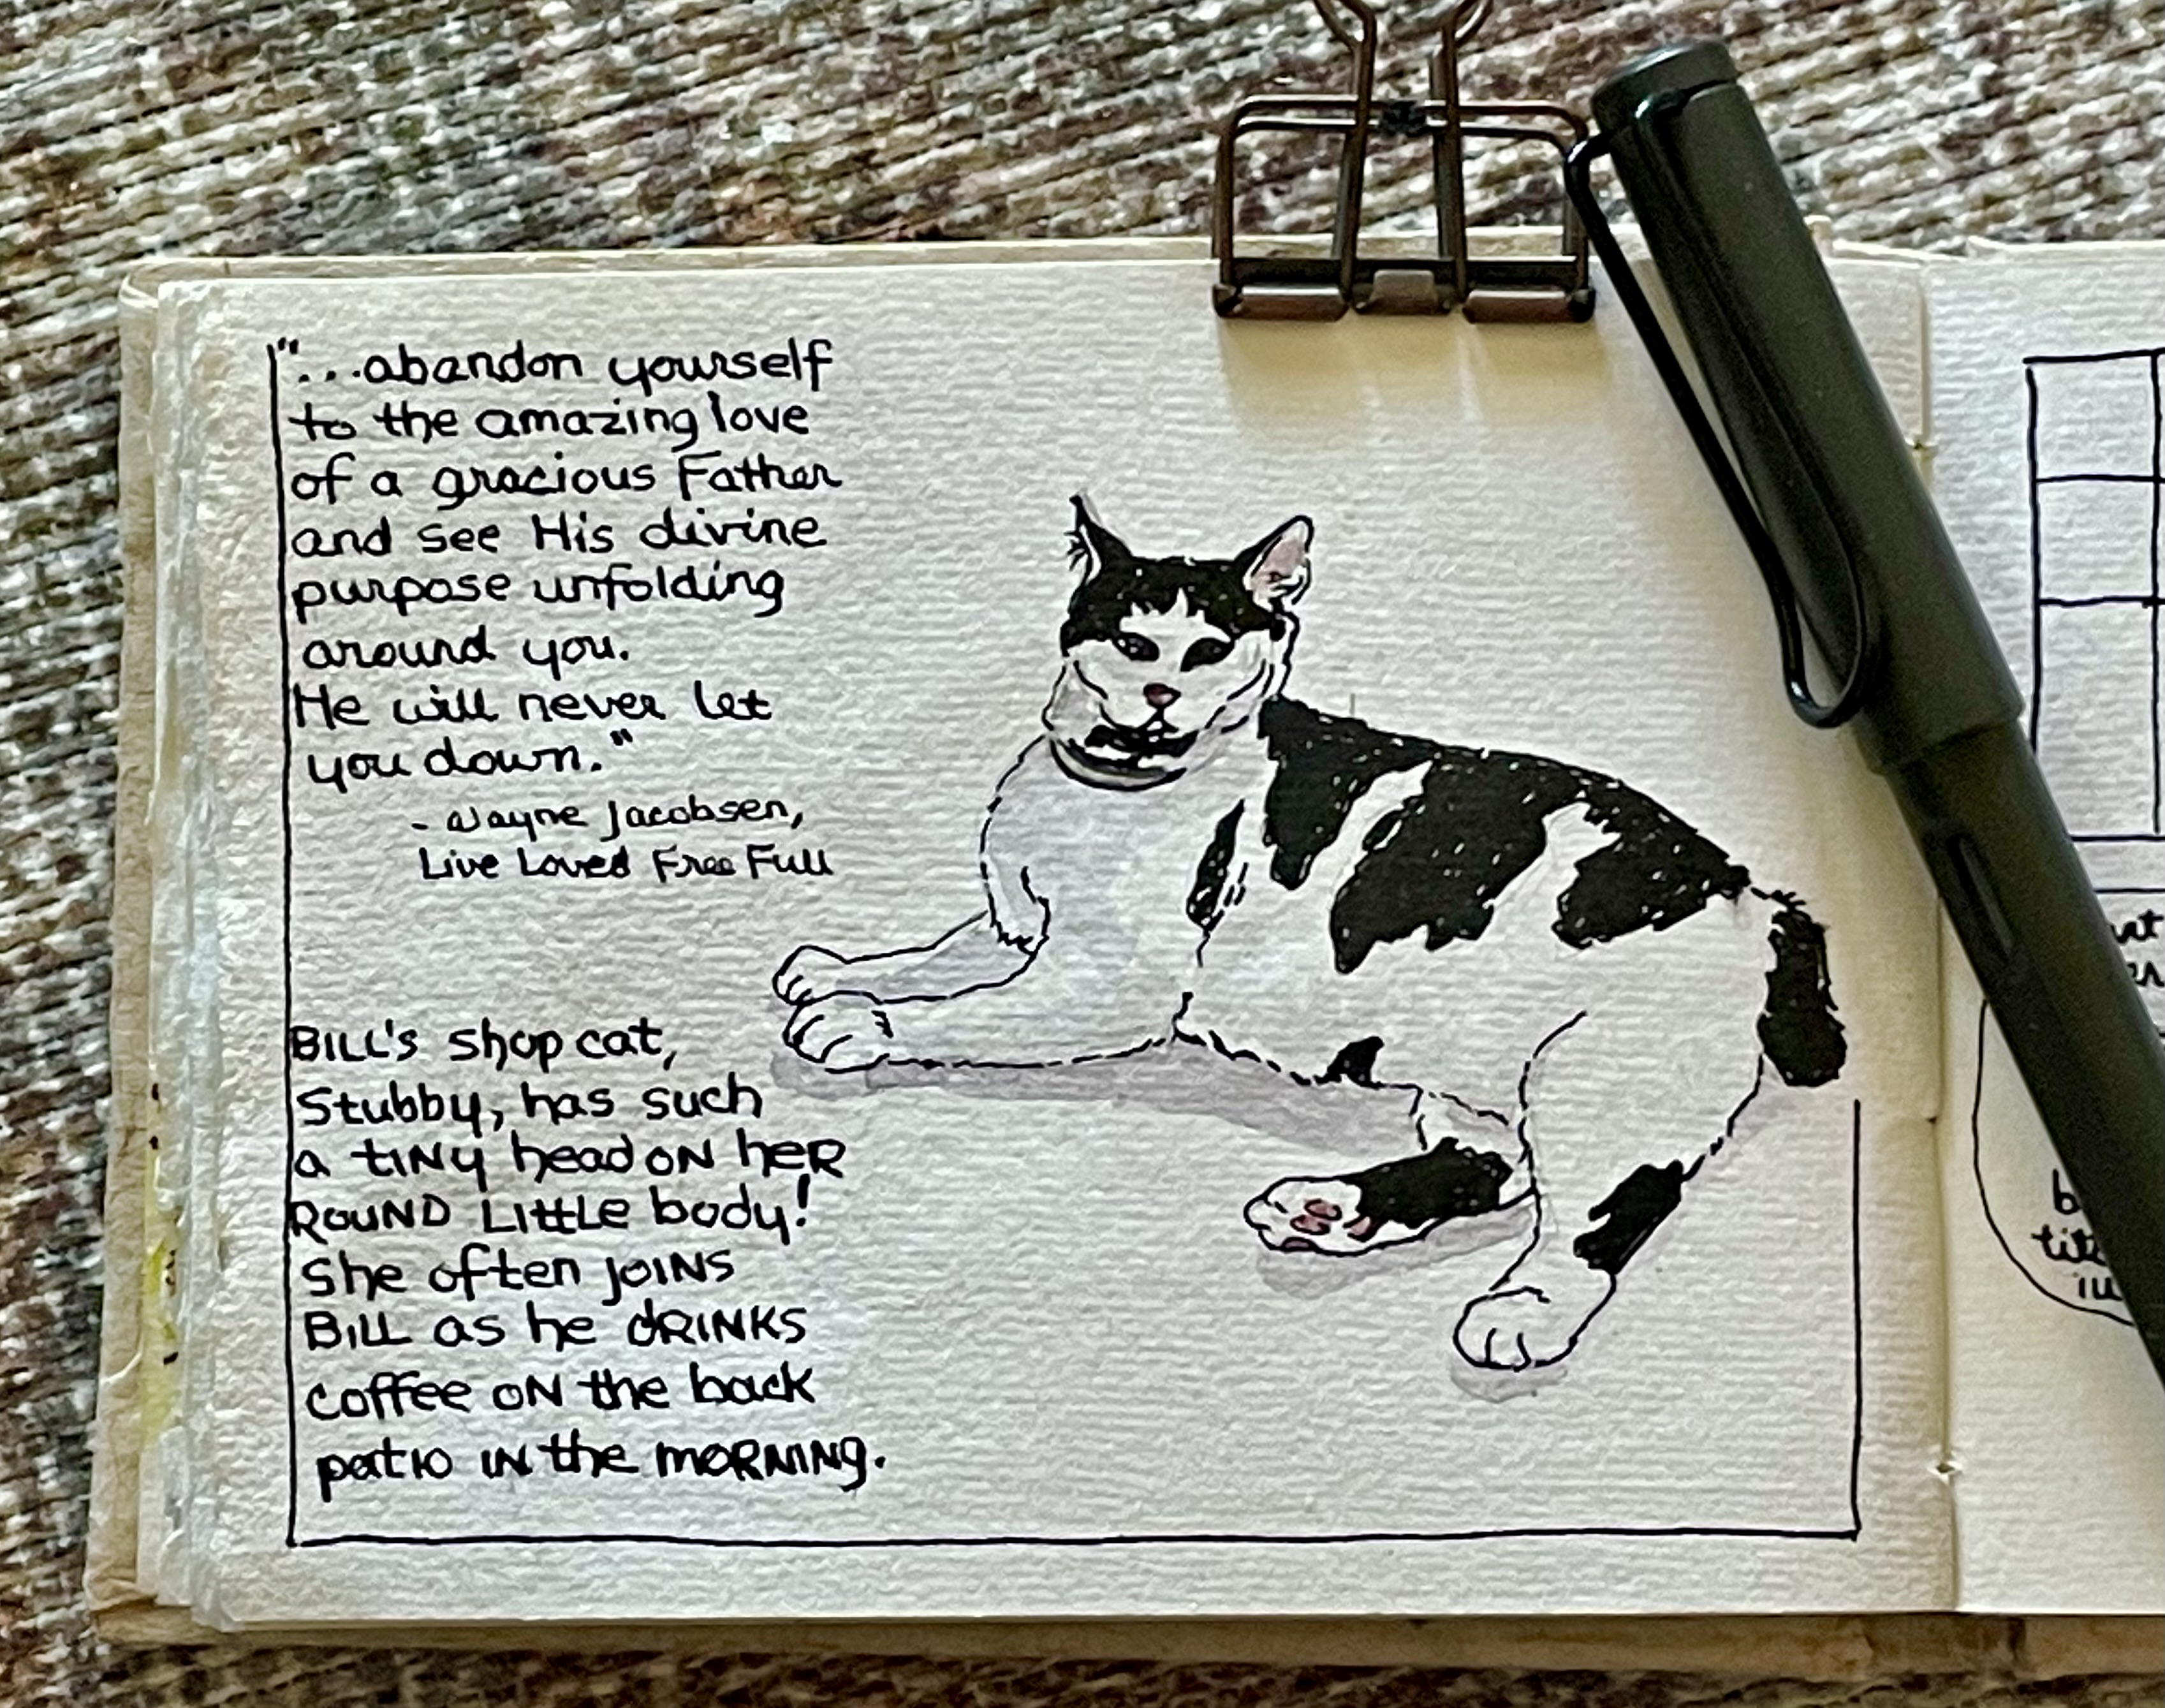 "...abandon yourself
to the amazing love
of a gracious Father
and see His divine
purpose unfolding
around you.
He will never let
you down."
- Wayne Jacobsen,
Live Loved Free Full
BILL's shop cat,
Stubby, has such
a tiny head on her
ROUND Little body!
She often joins
Bill as he drinks
coffee on the back
patio in the morning.